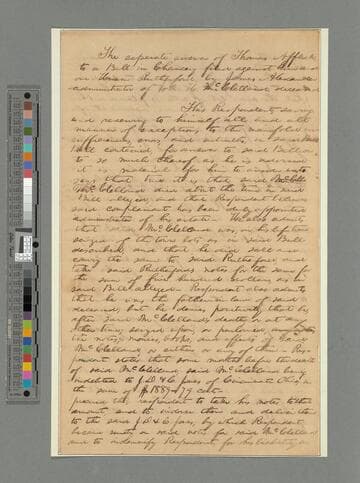 The seperate answer of Thomas Affleck
to a Bill in Chancery filed against him and
on Isaac Rutherford by James Alexander
administrator of Wm H McClelland deceased
This Respondent saving
and reserving to himself all and all
manner of exceptions to the manifold in
sufficiencies, errors, and untruths, in said
Bill contained, for answer to said Bill or
to so much thereof as he is advised
it is material for him to answer unto
says that true it is that said
McClelland died about the time in said
Bill alleged and this Respondent believes
said complainant has been duly appointed
administrator of his estate. He also admits
that said McClelland was, in his lifetime
seized of the town lots as in said Bill
described, and that he did sell and
convey the same to said Rutherford and
take said Rutherfords notes for the same for
the sum of five hundred dollars as in
said Bill alleged. Respondent also admits
that he was the father in law of said
deceased, but he denies positively that he
after said McClellands death, or at any
other time, seized upon or purloined
the notes, money, books, and effects of said
McClelland or either or any of them. Res-
pondent states that some months before the death
of said McClelland, said McClelland being
indebted to J.D & C Jones, of Cincinnati Ohio, in
the sum of $1889.79 Cts.
procured this respondent to take his notes to that
amount, and to endorse them and deliver them
to the said J.D & C Jones, by which Respondent
became surety on said notes for said McClelland
and to indemnify Respondent for his liability on